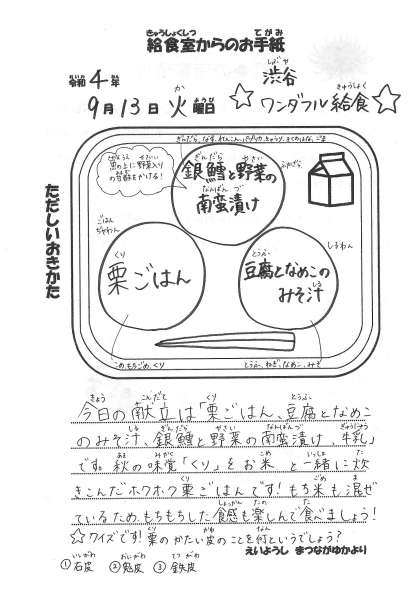 給食室からのお手紙
令和4年
9月13日 火曜日
渋谷
☆ワンダフル給食☆
ただしいおきかた
銀鱈と野菜の
南蛮漬け
ごはん
ぢゃわん
栗ごはん
しるわん
豆腐となめこの
みそ汁
こめ、もちごめ、くり
とうふ、ねぎ、なめこ、みそ
今日の献立は「栗ごはん、豆腐となめこ
のみそ汁、銀鱈と野菜の南蛮漬け、牛乳」
です。秋の味覚「くり」をお米と一緒に炊
きこんだホクホク栗ごはんです!もち米も混ぜ
ているため、もちもちした食感も楽しんで食べましょう!
☆クイズです!栗のかたい皮のことを何というでしょう?
えいようし まつながゆかより
①石皮 ②鬼皮 ③鉄皮